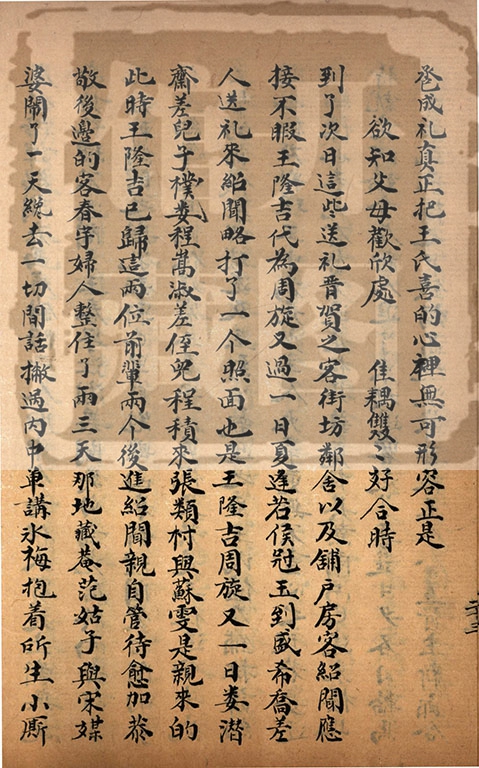 卺成礼真正把王氏喜的心裡無可形容正是
欲知父母歡欣處 佳耦雙〻好合時
到了次日這些送礼晋賀之客街坊鄰舍以及舖户房客紹聞應
接不暇王隆吉代為周旋又過一日夏逢若侯冠玉到盛希喬差
人送礼來紹聞略打了一个照面也是王隆吉周旋又一日娄潜
齋差兒子樸娄程嵩淑差侄兒程積來張類村與蘇雯是親來的
此時王隆吉已歸這两位前輩兩个後進紹聞親自管待愈加恭
敬後邊的客春宇婦人整住了兩三天那地藏菴范姑子與宋媒
婆鬧了一天纔去一切閒話撇過內中单講氷梅抱着所生小厮